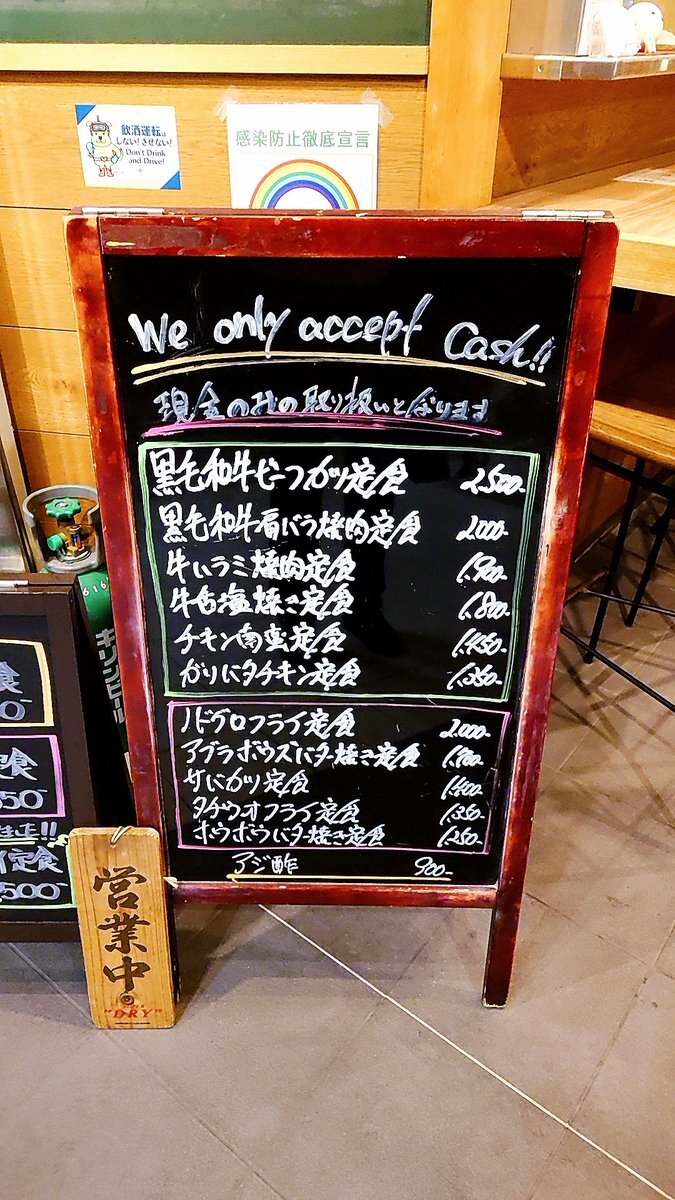 飲酒運転は
しない!させない!
Don't Drink
and Drive!
感染防止徹底宣言
We only accept Cash!!
現金のみの取り扱いとなります
黒毛和牛ビーフカツ定食 2,500-
黒毛和牛肩バラ焼肉定食 2,000-
牛ハラミ焼肉定食 1,900-
牛舌塩焼き定食 1,800-
チキン南蛮定食 1,450-
ガリバタチキン定食 1,350-
ノドグロフライ定食 2,000-
アブラボウズバター焼き定食 1,700-
サバカツ定食 1,400-
タチウオフライ定食 1,350-
ホウボウバター焼き定食 1,250-
アジ酢 900-
キリンビール
食
0
食
50
!!
定食
500
営業中
"DRY"